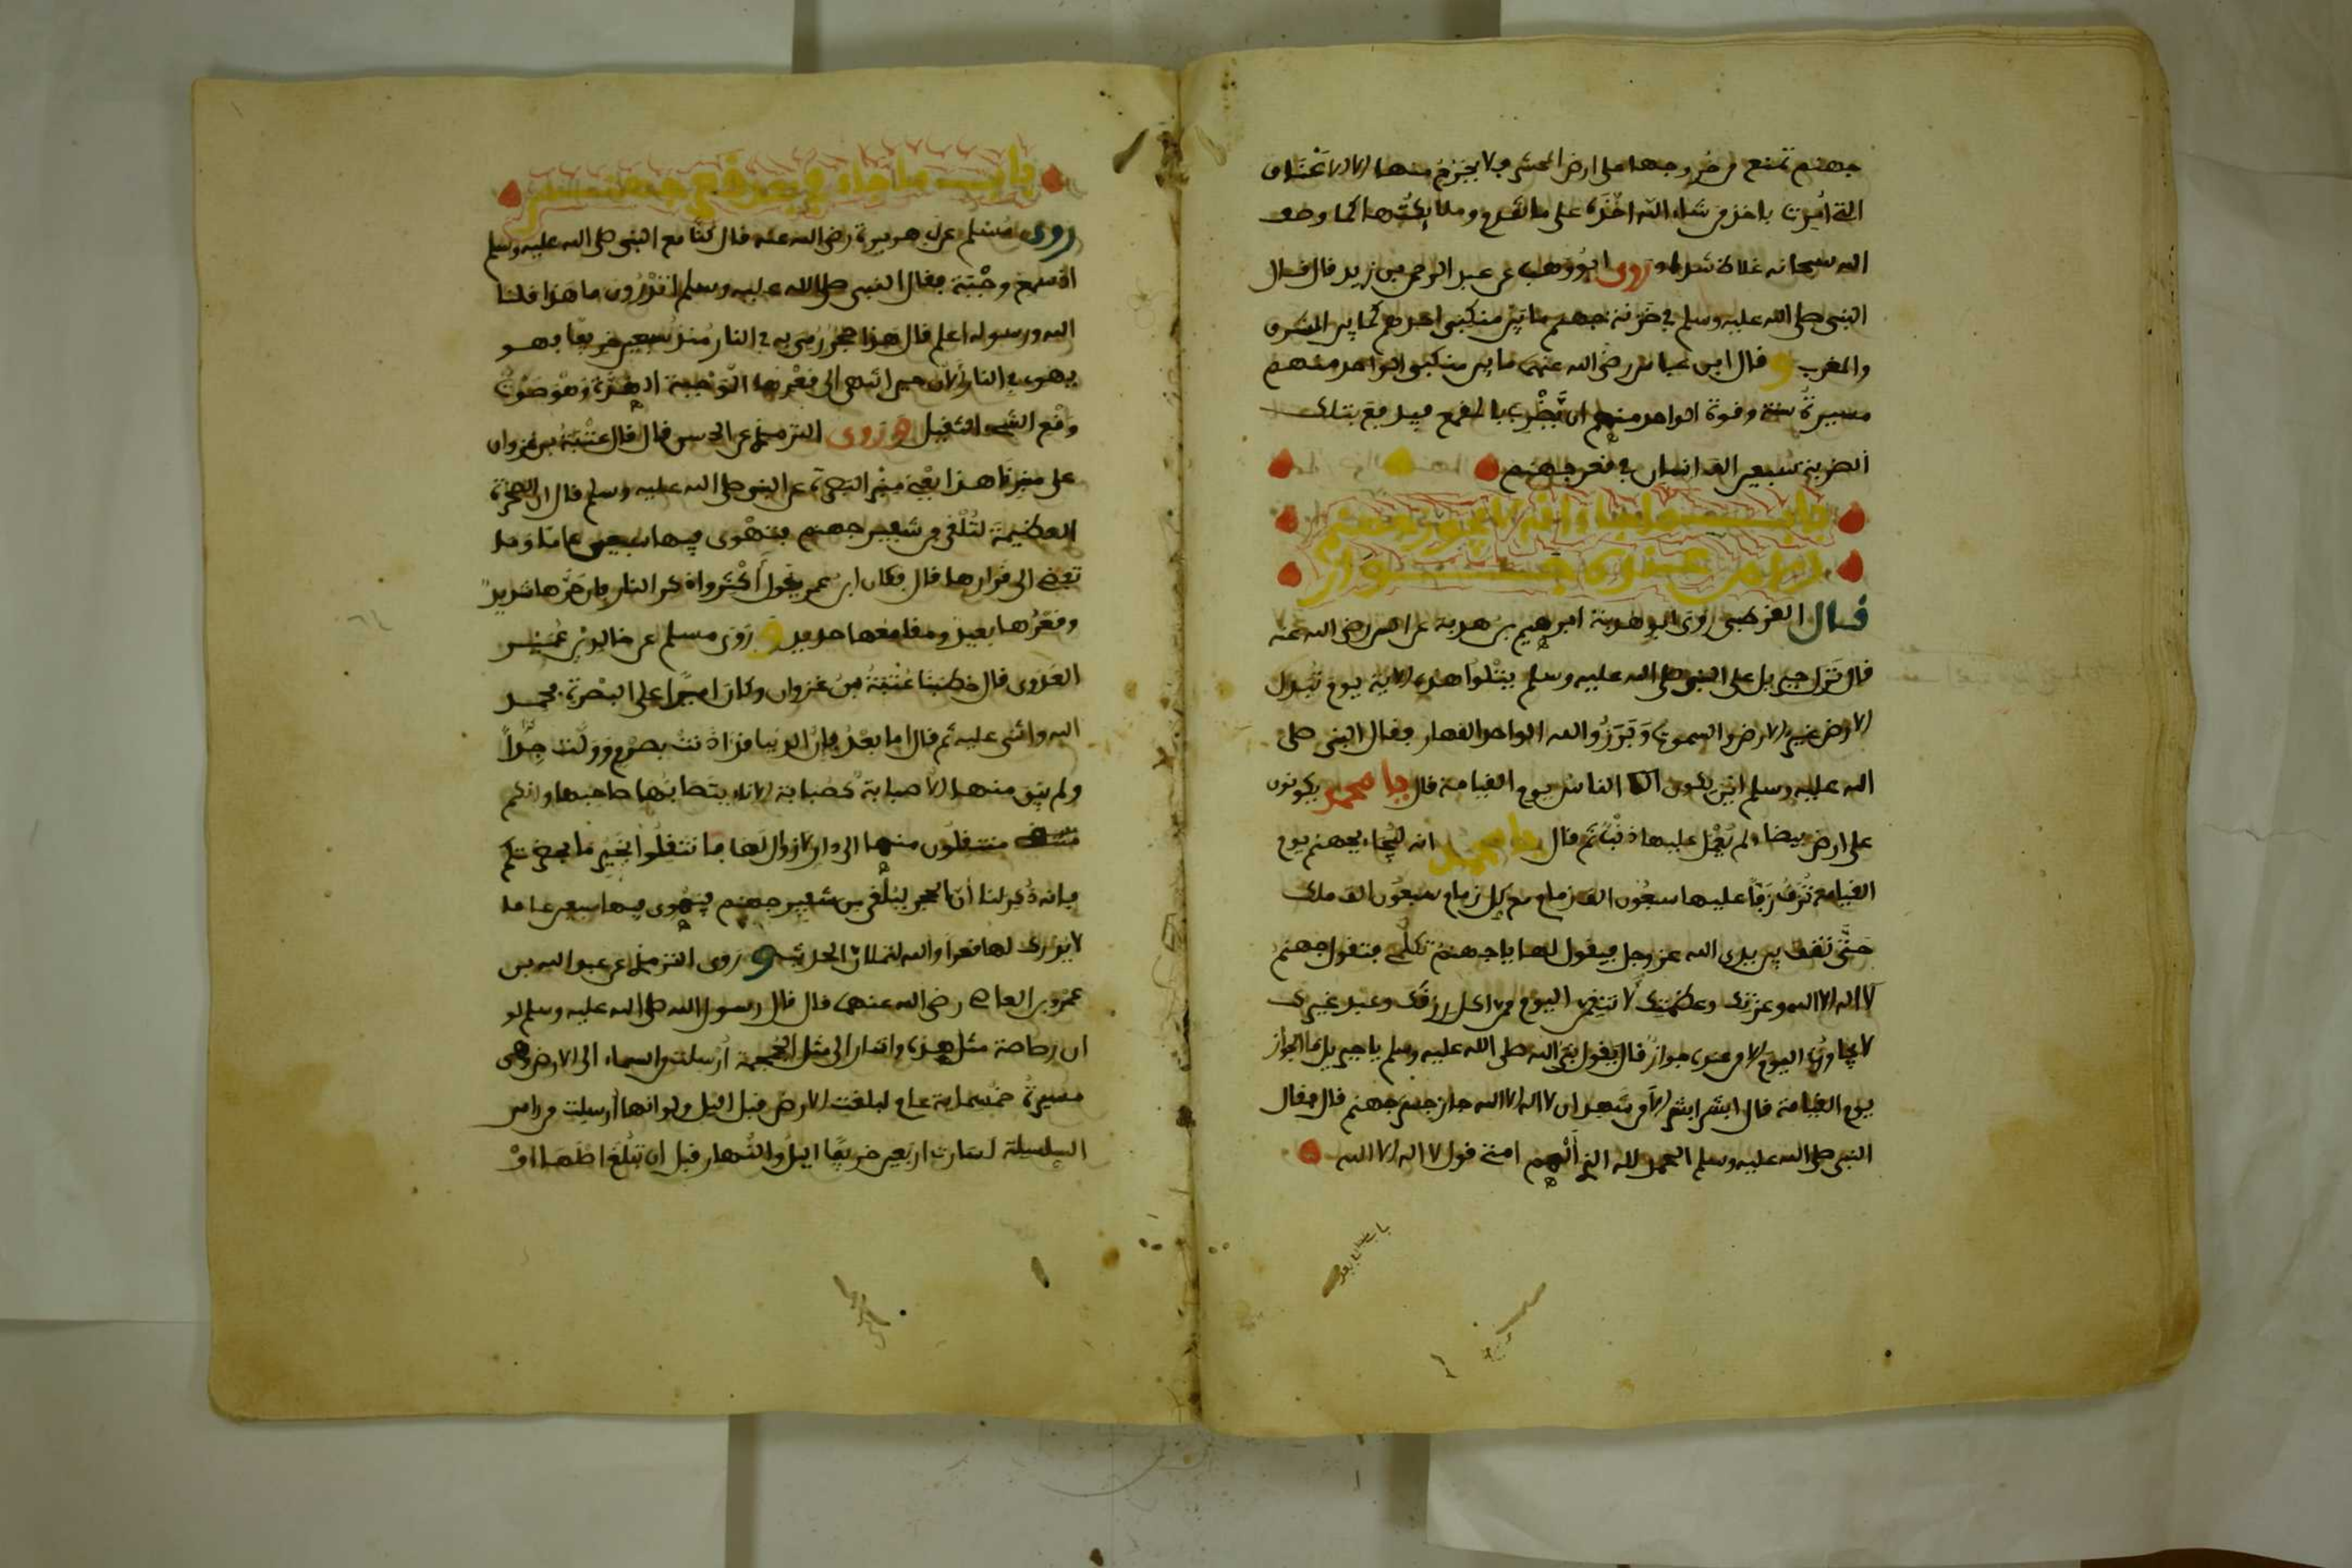 جهنم تمنع من خروجها على ارض المحشر فلا يخرج منها الا الاعناق
التي امرت باخذ من شاء الله اخذه على ما تقدم وملائكتها كما وصف
الله سبحانه غلاظ شداد وروى ابن وهب عن عبد الرحمن بن زيد قال قال
النبي صلى الله عليه وسلم في خزنة جهنم ما بين منكبي احدهم كما بين المشرق
والمغرب و قال ابن عباس رضي الله عنهما ما بين منكبي الواحد منهم
مسيرة سنة وقوة الواحد منهم ان يضرب بالمقمع فيدفع بتلك
الضربة سبعين الف انسان في قعر جهنم
باب ما جاء في ان جهنم
قال القرطبي روى ابو هدبة ابرهيم بن هدبة عن انس رضي الله عنه
قال نزل جبريل على النبي صلى الله عليه وسلم يتلوا هذه الاية يوم تبدل
الارض غير الارض والسموت وبرزوا لله الواحد القهار فقال النبي صلى
الله عليه وسلم اين يكون الناس يوم القيامة قال يا محمد يكونون
على ارض بيضاء لم يعمل عليها ذنب ثم قال يا محمد انه ليجاء بجهنم يوم
القيامة تزف زفا عليها سبعون الف زمام مع كل زمام سبعون الف ملك
حتى تقف بين يدي الله عزوجل فيقول لها يا جهنم تكلمي فتقول جهنم
لا اله الا الله وعزتك وعظمتك لانتقمن اليوم ممن اكل رزقك وعبد غيرك
لا يجاوزني اليوم الا من عنده جواز قال يقول نبي الله صلى الله عليه وسلم يا جبريل ما الجواز
يوم القيامة قال ابشر ابشر الا من شهد ان لا اله الا الله جاز جسر جهنم قال فقال
النبي صلى الله عليه وسلم الحمد لله الذي الهم امتي قول لا اله الا الله
باب ما جاء في بعد قعر جهنم
روى مسلم عن ابي هريرة رضي الله عنه قال كنا مع النبي صلى الله عليه وسلم
اذ سمع وجبة فقال النبي صلى الله عليه وسلم اتدرون ما هذا قلنا
الله ورسوله اعلم قال هذا حجر رمي به في النار منذ سبعين خريفا فهو
يهوى في النار الان حين انتهى الى قعرها الوجبة الهدة وهو صوت
وقع الشيء الثقيل وروى الترمذي عن الحسن قال قال عتبة بن غزوان
على منبرنا هذا يعني منبر البصرة عن النبي صلى الله عليه وسلم قال ان الصخرة
العظيمة لتلقى من شفير جهنم فتهوى فيها سبعين عاما وما
تفضي الى قرارها قال فكان ابن عمر يقول اكثروا ذكر النار فان حرها شديد
وقعرها بعيد ومقامعها حديد و روى مسلم عن خالد بن عمير
العدوى قال خطبنا عتبة بن غزوان وكان اميرا على البصرة فحمد
الله واثنى عليه ثم قال اما بعد فان الدنيا قد اذنت بصرم وولت جدا
ولم يبق منها الا صبابة كصبابة الاناء يتصابها صاحبها وانكم
منتقلون منها الى دار لا زوال لها فانتقلوا بخير ما بحضرتكم
فانه ذكر لنا ان الحجر ليلقى من شفير جهنم فيهوى فيها سبعين عاما
لا يدرك لها قعرا والله لتملان الحديث و روى الترمذي عن عبد الله بن
عمرو بن العاصي رضي الله عنهما قال قال رسول الله صلى الله عليه وسلم لو
ان رصاصة مثل هذه واشار الى مثل الجمجمة ارسلت من السماء الى الارض وهي
مسيرة خمسماية عام لبلغت الارض قبل الليل ولو انها ارسلت من راس
السلسلة لسارت اربعين خريفا الليل والنهار قبل ان تبلغ اصلها او